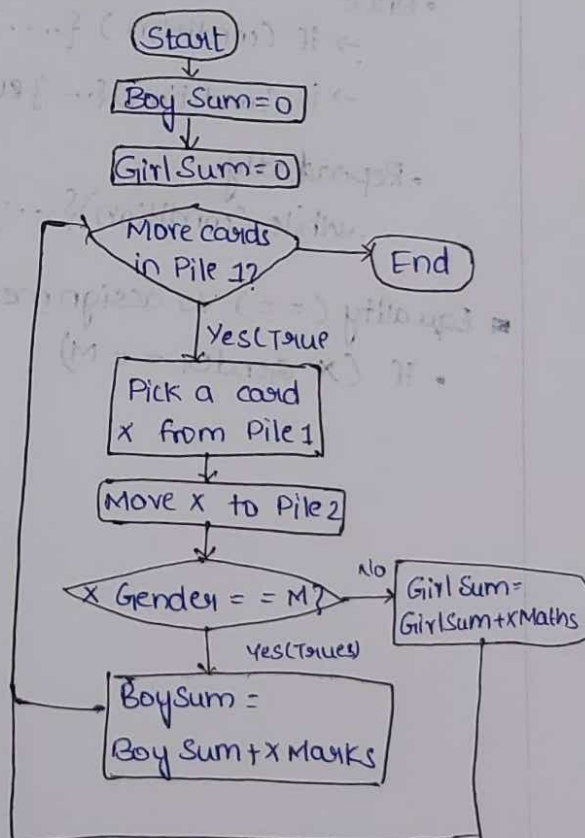 Start
Boy Sum=0
Girl Sum=0
More cards
in Pile 1?
End
Yes(True
Pick a card
X from Pile 1
Move X to Pile 2
X Gender == M?
No
Girl Sum=
Girl Sum+X Maths
Yes(Trues)
Boy Sum =
Boy Sum+X Marks